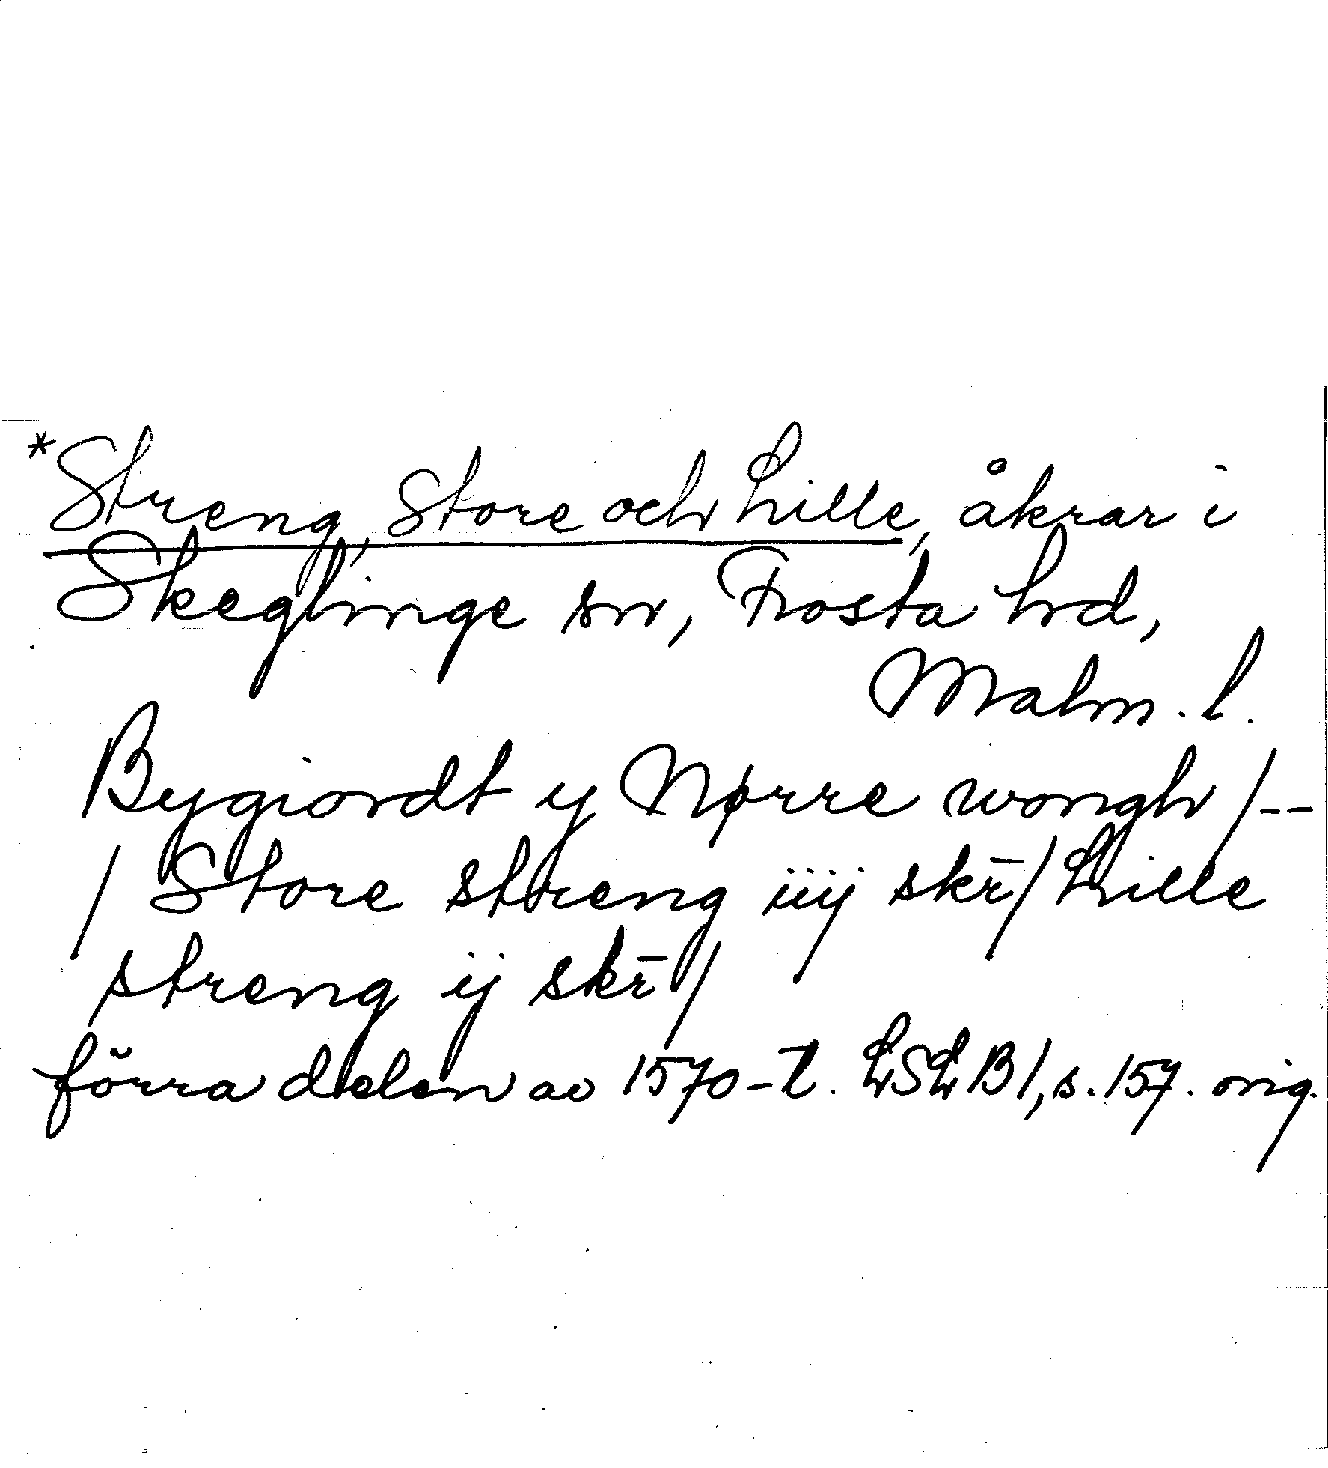 *Streng, Store och Lille, åkrar i
Skeglinge sn, Frosta hd,
Malm. l.
Bygiordt y Nørre wongh /--
/ Store streng iiij skr̄/ Lille
streng ij skr̄ /
förra delen av 1570-t. LSLB1, s. 157. orig.